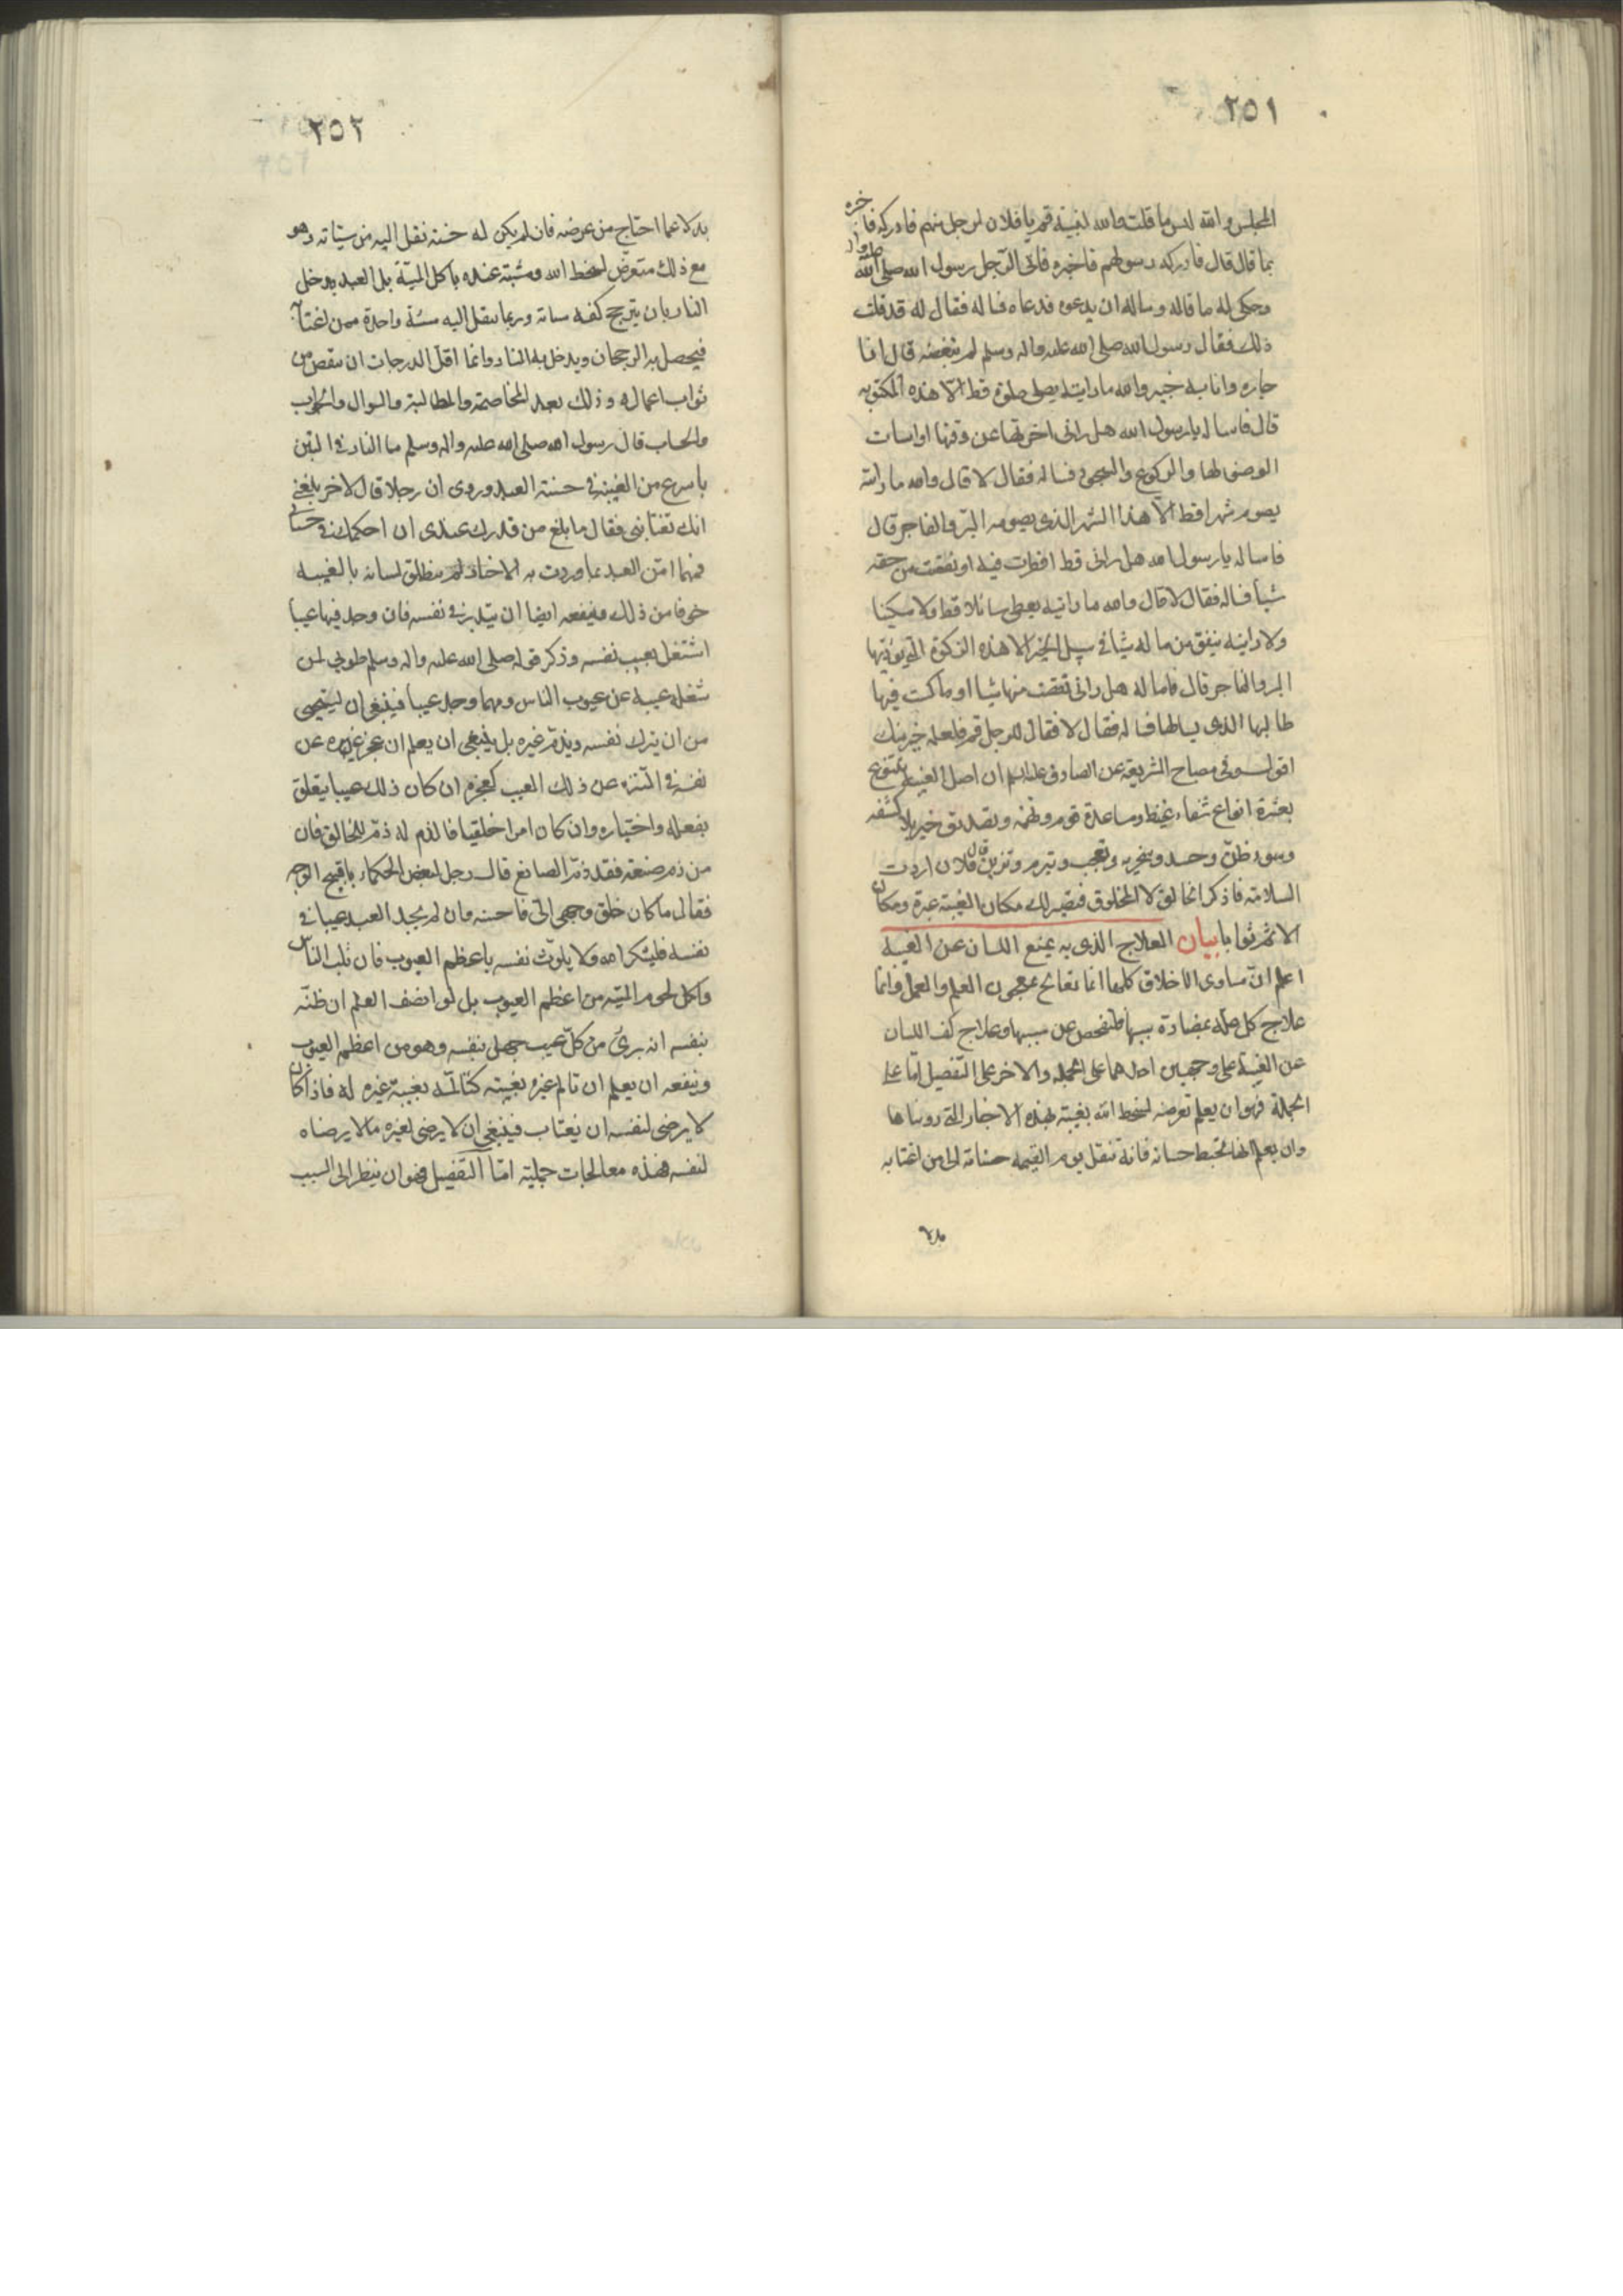 ٢٥١
المجلس والله لبئس ما قلت والله لنبينه قم يا فلان لرجل منهم فادركه فاخبره
بما قال قال فادركه رسولهم فاخبره فاتى الرجل رسول الله صلى الله
وحكى له ما قاله وساله ان يدعوه فدعاه فساله فقال له قد قلت
ذلك فقال رسول الله صلى الله عليه واله وسلم لم تبغضه قال انا
جاره وانا به خبير والله ما رايته يصلى صلوة قط الا هذه المكتوبه
قال فاساله يا رسول الله هل رانى اخرتها عن وقتها او اسات
الوضوء لها والركوع والسجود فساله فقال لا قال والله ما رايته
يصوم شهرا قط الا هذا الشهر الذى يصومه البر والفاجر قال
فاساله يا رسول الله هل رانى قط افطرت فيه او نقصت من حقه
شيأ فساله فقال لا قال والله ما رايته يعطى سائلا قط ولا مسكينا
ولا رايته ينفق من ماله شيئا فى سبيل الخير الا هذه الزكوة التى يؤديها
البر والفاجر قال فاساله هل رانى نقصت منها شيئا او ماكست فيها
طالبها الذى يسالها فساله فقال لا فقال للرجل قم فلعله خير منك
اقول وفى مصباح الشريعه عن الصادق عليه السلم ان اصل الغيبة يتنوع
بعشرة انواع شفاء غيظ ومساعدة قوم وتهمة وتصديق خبر بلا كشفه
وسوء ظن وحسد وسخريه وتعجب وتبرم وتزين قال فلان اردت
السلامة فاذكر الخالق لا المخلوق فيصير لك مكان الغيبة عبرة ومكان
الاثم ثوابا بيان العلاج الذى به يمنع اللسان عن الغيبة
اعلم ان مساوى الاخلاق كلها انما تعالج بمعجون العلم والعمل وانما
علاج كل علة بمضادة سببها فلنفحص عن سببها وعلاج كف اللسان
عن الغيبة على وجهين احدهما على الجملة والاخر على التفصيل اما على
الجملة فهو ان يعلم تعرضه لسخط الله بغيبته بهذه الاخبار التى رويناها
وان يعلم انها تحبط حسناته فانه تنقل يوم القيمة حسناته الى من اغتابه
بدلا
٢٥٢
بدلا عما احتاج من عرضه فان لم يكن له حسنة نقل اليه من سيئاته وهو
مع ذلك متعرض لسخط الله ومشبه عنده باكل الميتة بل العبد يدخل
النار بان يترجح كفة سيئاته وربما ينقل اليه سيئة واحدة ممن اغتابه
فيحصل به الرجحان ويدخل به النار وانما اقل الدرجات ان ينقص من
ثواب اعماله وذلك بعد المخاصمة والمطالبة والسوال والجواب
والحساب قال رسول الله صلى الله عليه واله وسلم ما النار فى اليبس
باسرع من الغيبة فى حسنة العبد وروى ان رجلا قال لاخر بلغنى
انك تغتابنى فقال ما بلغ من قدرك عندى ان احكمك فى حسناتى
فمهما امن العبد بما وردت به الاخبار لم ينطلق لسانه بالغيبة
خوفا من ذلك وينفعه ايضا ان يتدبر فى نفسه فان وجد فيها عيبا
اشتغل بعيب نفسه وذكر قوله صلى الله عليه واله وسلم طوبى لمن
شغله عيبه عن عيوب الناس ومهما وجد عيبا فينبغى ان يستحيى
من ان يترك نفسه ويذم غيره بل ينبغى ان يعلم ان عجز غيره عن
نفسه فى التنزه عن ذلك العيب كعجزه ان كان ذلك عيبا يتعلق
بفعله واختياره وان كان امرا خلقيا فالذم له ذم للخالق فان
من ذم صنعة فقد ذم الصانع قال رجل لبعض الحكماء يا قبيح الوجه
فقال ما كان خلق وجهى الى فاحسنه وان لم يجد العبد عيبا فى
نفسه فليشكر الله ولا يلوث نفسه باعظم العيوب فان ثلب الناس
واكل لحوم الميتة من اعظم العيوب بل لو انصف العلم ان ظنه
بنفسه انه برئ من كل عيب جهل بنفسه وهو من اعظم العيوب
وينفعه ان يعلم ان تالم غيره بغيبته كتالمه بغيبة غيره له فاذا كان
لا يرضى لنفسه ان يغتاب فينبغى ان لا يرضى لغيره ما لا يرضاه
لنفسه فهذه معالجات جملية اما التفصيل فهو ان ينظر الى السبب